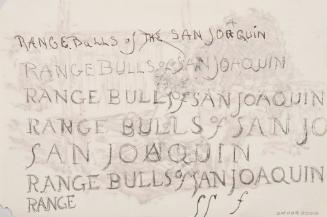 RANGE BULLS of THE SAN JOAQUIN
RANGE BULLS of SAN JOAQUIN
RANGE BULLS of SAN JOAQUIN
RANGE BULLS of SAN JO
SAN JOAQUIN
RANGE BULLS of SAN JOAQUIN
RANGE